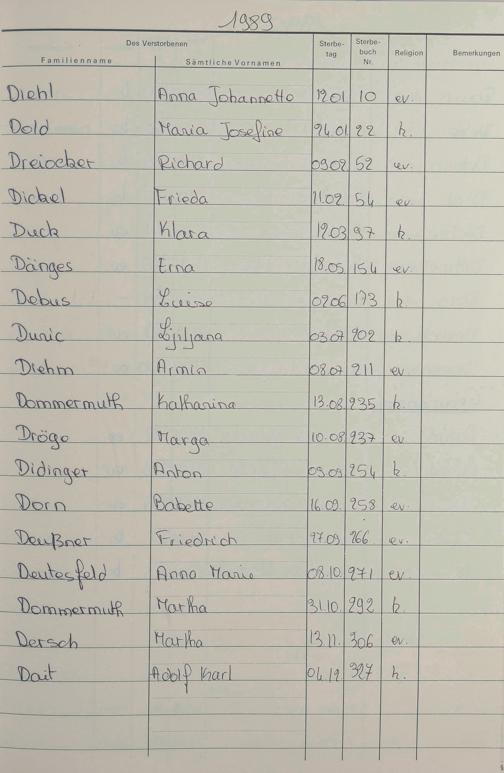 1989
Des Verstorbenen Sterbe- Sterbe- Religion Bemerkungen
Familienname Sämtliche Vornamen tag buch Nr.
Diehl Anna Johannette 12.01 10 ev.
Dold Maria Josefine 24.01 22 k.
Dreiocker Richard 09.02 52 ev.
Dickel Frieda 11.02 54 ev
Duck Klara 12.03 97 k.
Dänges Erna 18.05 154 ev.
Debus Luise 02.06 173 k
Dunic Ljiljana 03.07 202 k
Diehm Armin 08.07 211 ev
Dommermuth Katharina 13.08 235 k.
Dröge Marga 10.08 237 ev
Didinger Anton 09.09 254 k.
Dorn Babette 16.09. 258 ev.
Deußner Friedrich 27.09 266 ev.
Deutesfeld Anna Marie 08.10. 271 ev
Dommermuth Martha 31.10. 292 k.
Dersch Martha 13.11. 306 ev.
Dait Adolf Karl 04.12 327 k.